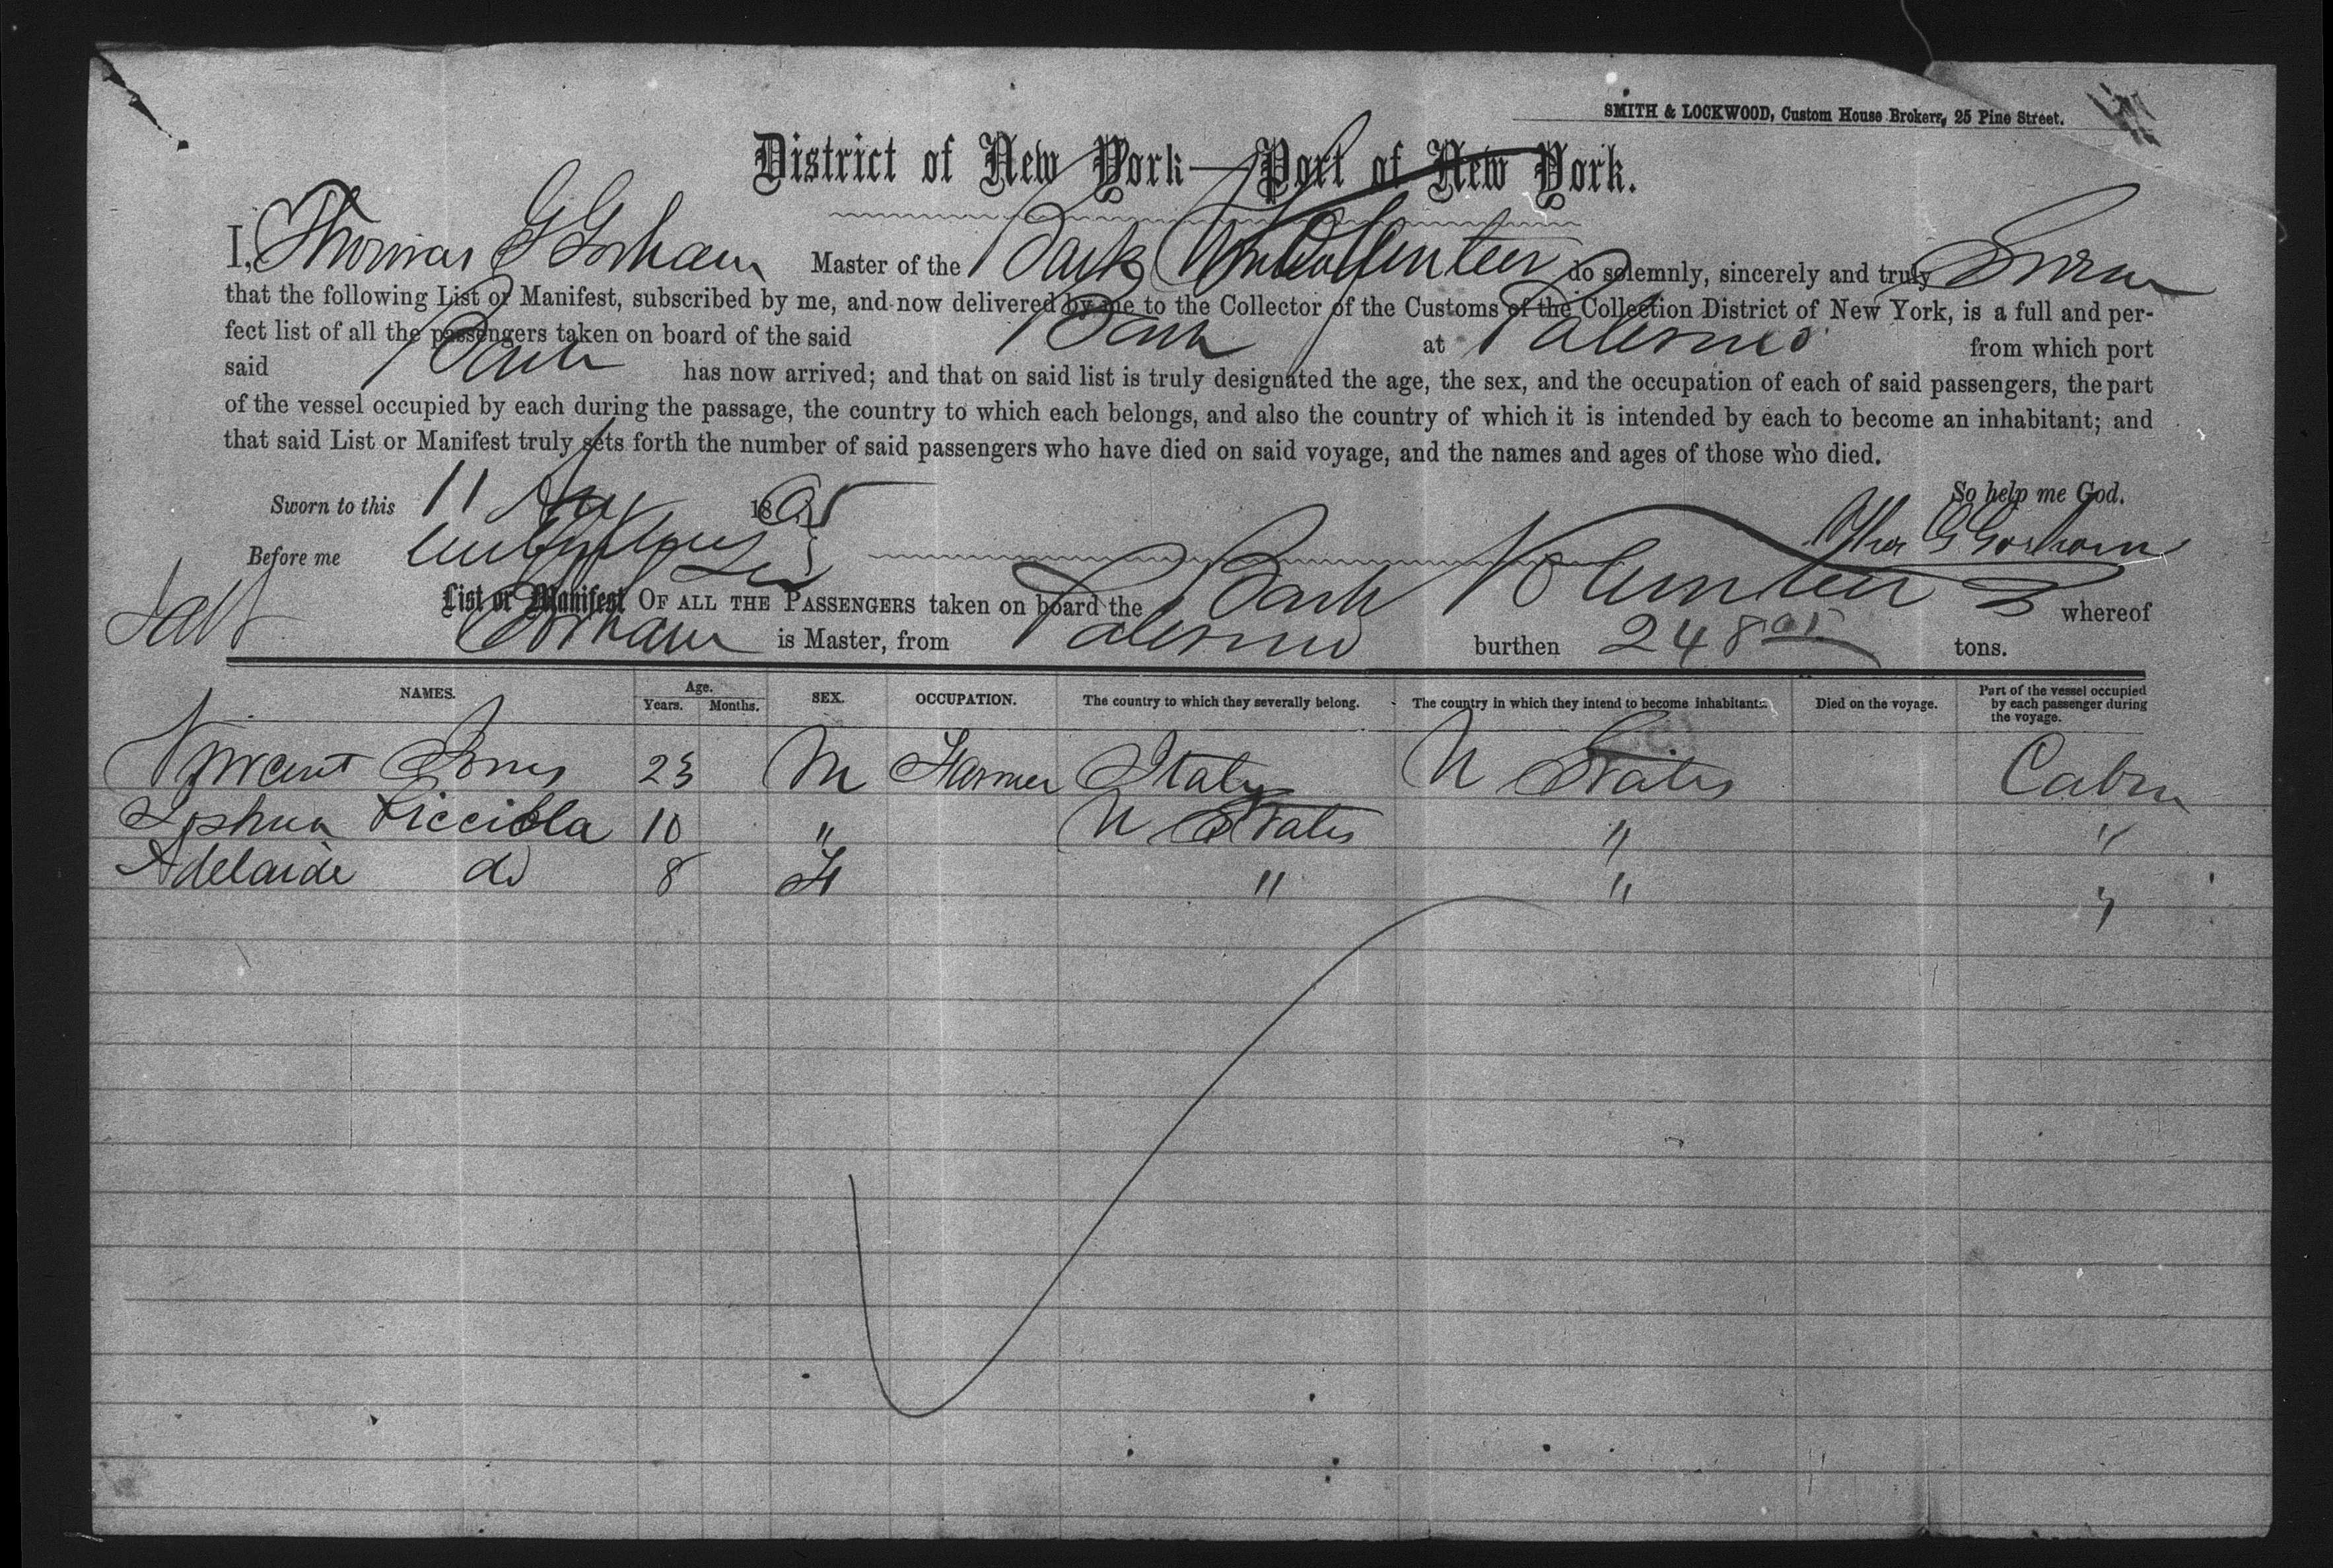 SMITH & LOCKWOOD, Custom House Brokers, 25 Pine Street.
District of New York—Port of New York.
I, Thomas G Gorham Master of the Bark Volunteer do solemnly, sincerely and truly Swear
that the following List or Manifest, subscribed by me, and now delivered by me to the Collector of the Customs of the Collection District of New York, is a full and per-
fect list of all the passengers taken on board of the said Bark at Palermo from which port
said Bark has now arrived; and that on said list is truly designated the age, the sex, and the occupation of each of said passengers, the part
of the vessel occupied by each during the passage, the country to which each belongs, and also the country of which it is intended by each to become an inhabitant; and
that said List or Manifest truly sets forth the number of said passengers who have died on said voyage, and the names and ages of those who died.
So help me God.
Sworn to this 11 18
Thos G Gorham
Before me
List or Manifest OF ALL THE PASSENGERS taken on board the Bark Volunteer whereof
Gorham is Master, from Palermo burthen 248 95 tons.
NAMES. Age. Years. Months. SEX. OCCUPATION. The country to which they severally belong. The country in which they intend to become inhabitants. Died on the voyage. Part of the vessel occupied by each passenger during the voyage.
Vincent 23 M Farmer Italy U States Cabin
Joshua 10 " U States " "
Adelaide do 8 F " " "